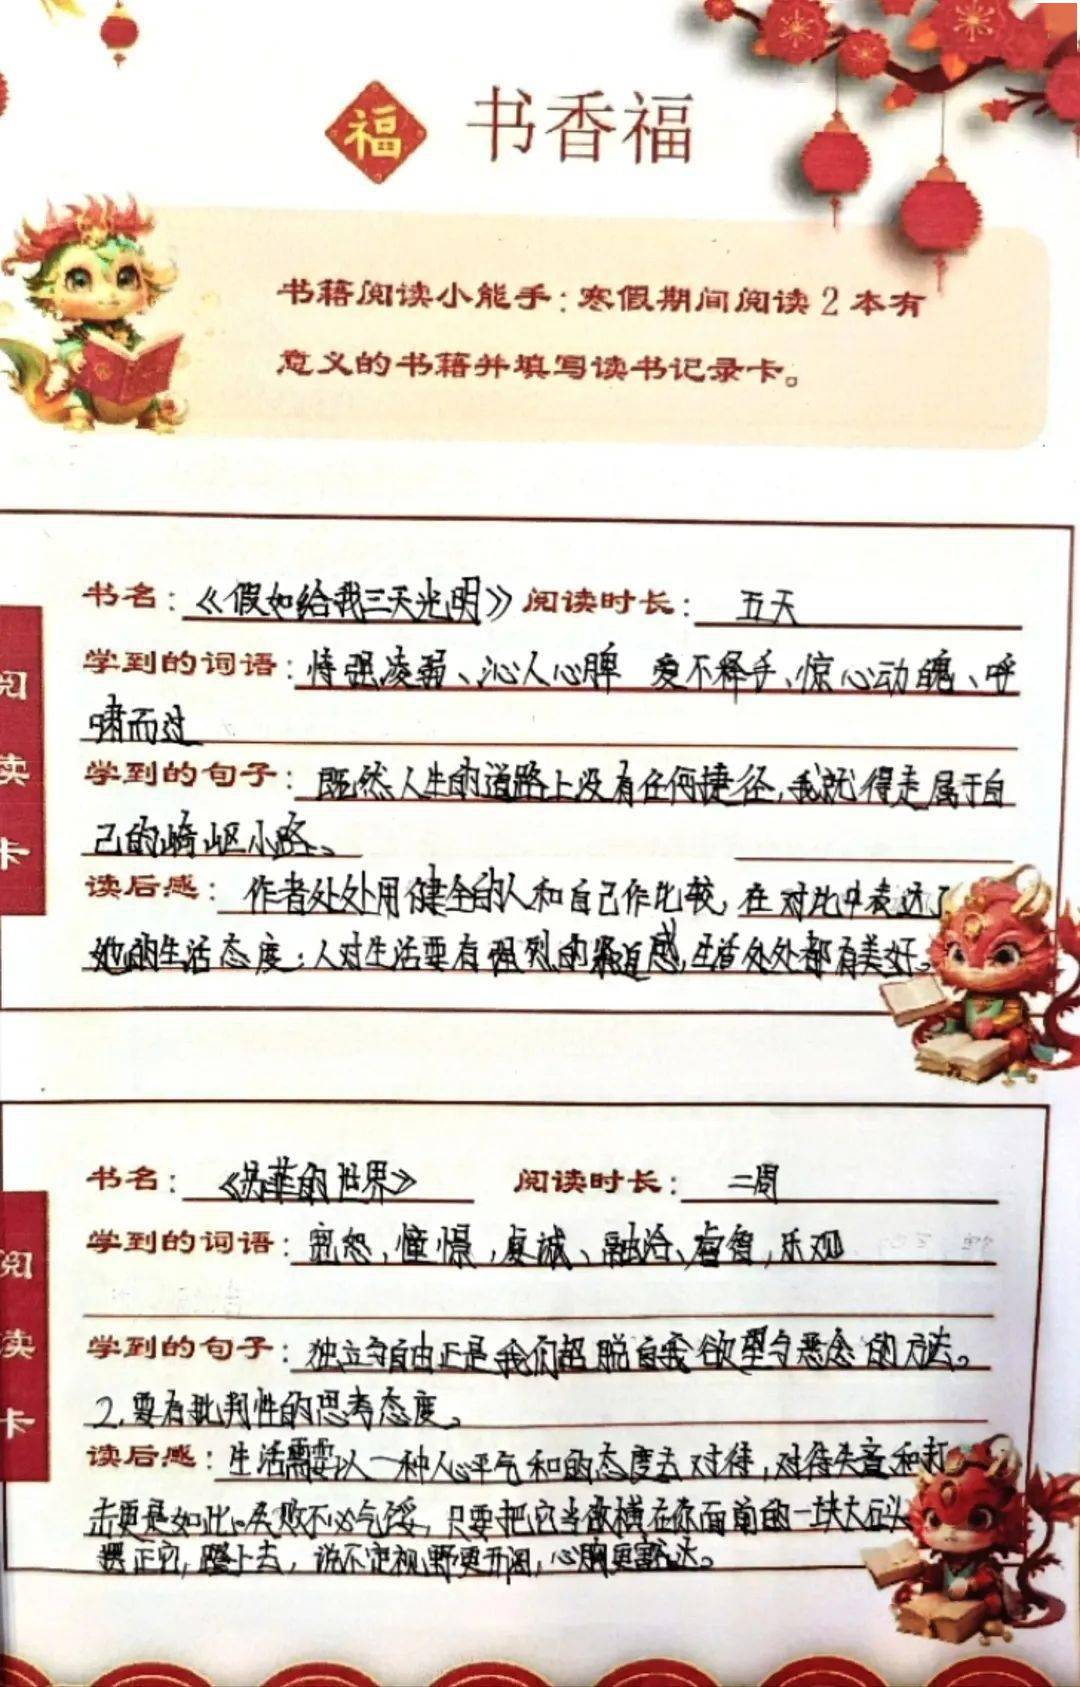 福 书香福
书籍阅读小能手：寒假期间阅读2本有
意义的书籍并填写读书记录卡。
阅读卡
书名：《假如给我三天光明》 阅读时长：五天
学到的词语：恃强凌弱、沁人心脾 爱不释手、惊心动魄、呼
啸而过
学到的句子：既然人生的道路上没有任何捷径，我就得走属于自
己的崎岖小路。
读后感：作者处处用健全的人和自己作比较，在对比中表达了
她的生活态度：人对生活要有强烈的紧迫感，生活处处都有美好。
阅读卡
书名：《苏菲的世界》 阅读时长：二周
学到的词语：宽恕，憧憬，真诚、融洽、睿智，乐观
学到的句子：独立与自由正是我们超脱自我欲望与恶念的方法。
2.要有批判性的思考态度。
读后感：生活需要以一种心平气和的态度去对待，对待失意和打
击更是如此。失败不必气馁，只要把它当做横在你面前的一块大石头
摆正它，蹬上去，说不定视野更开阔，心胸更豁达。